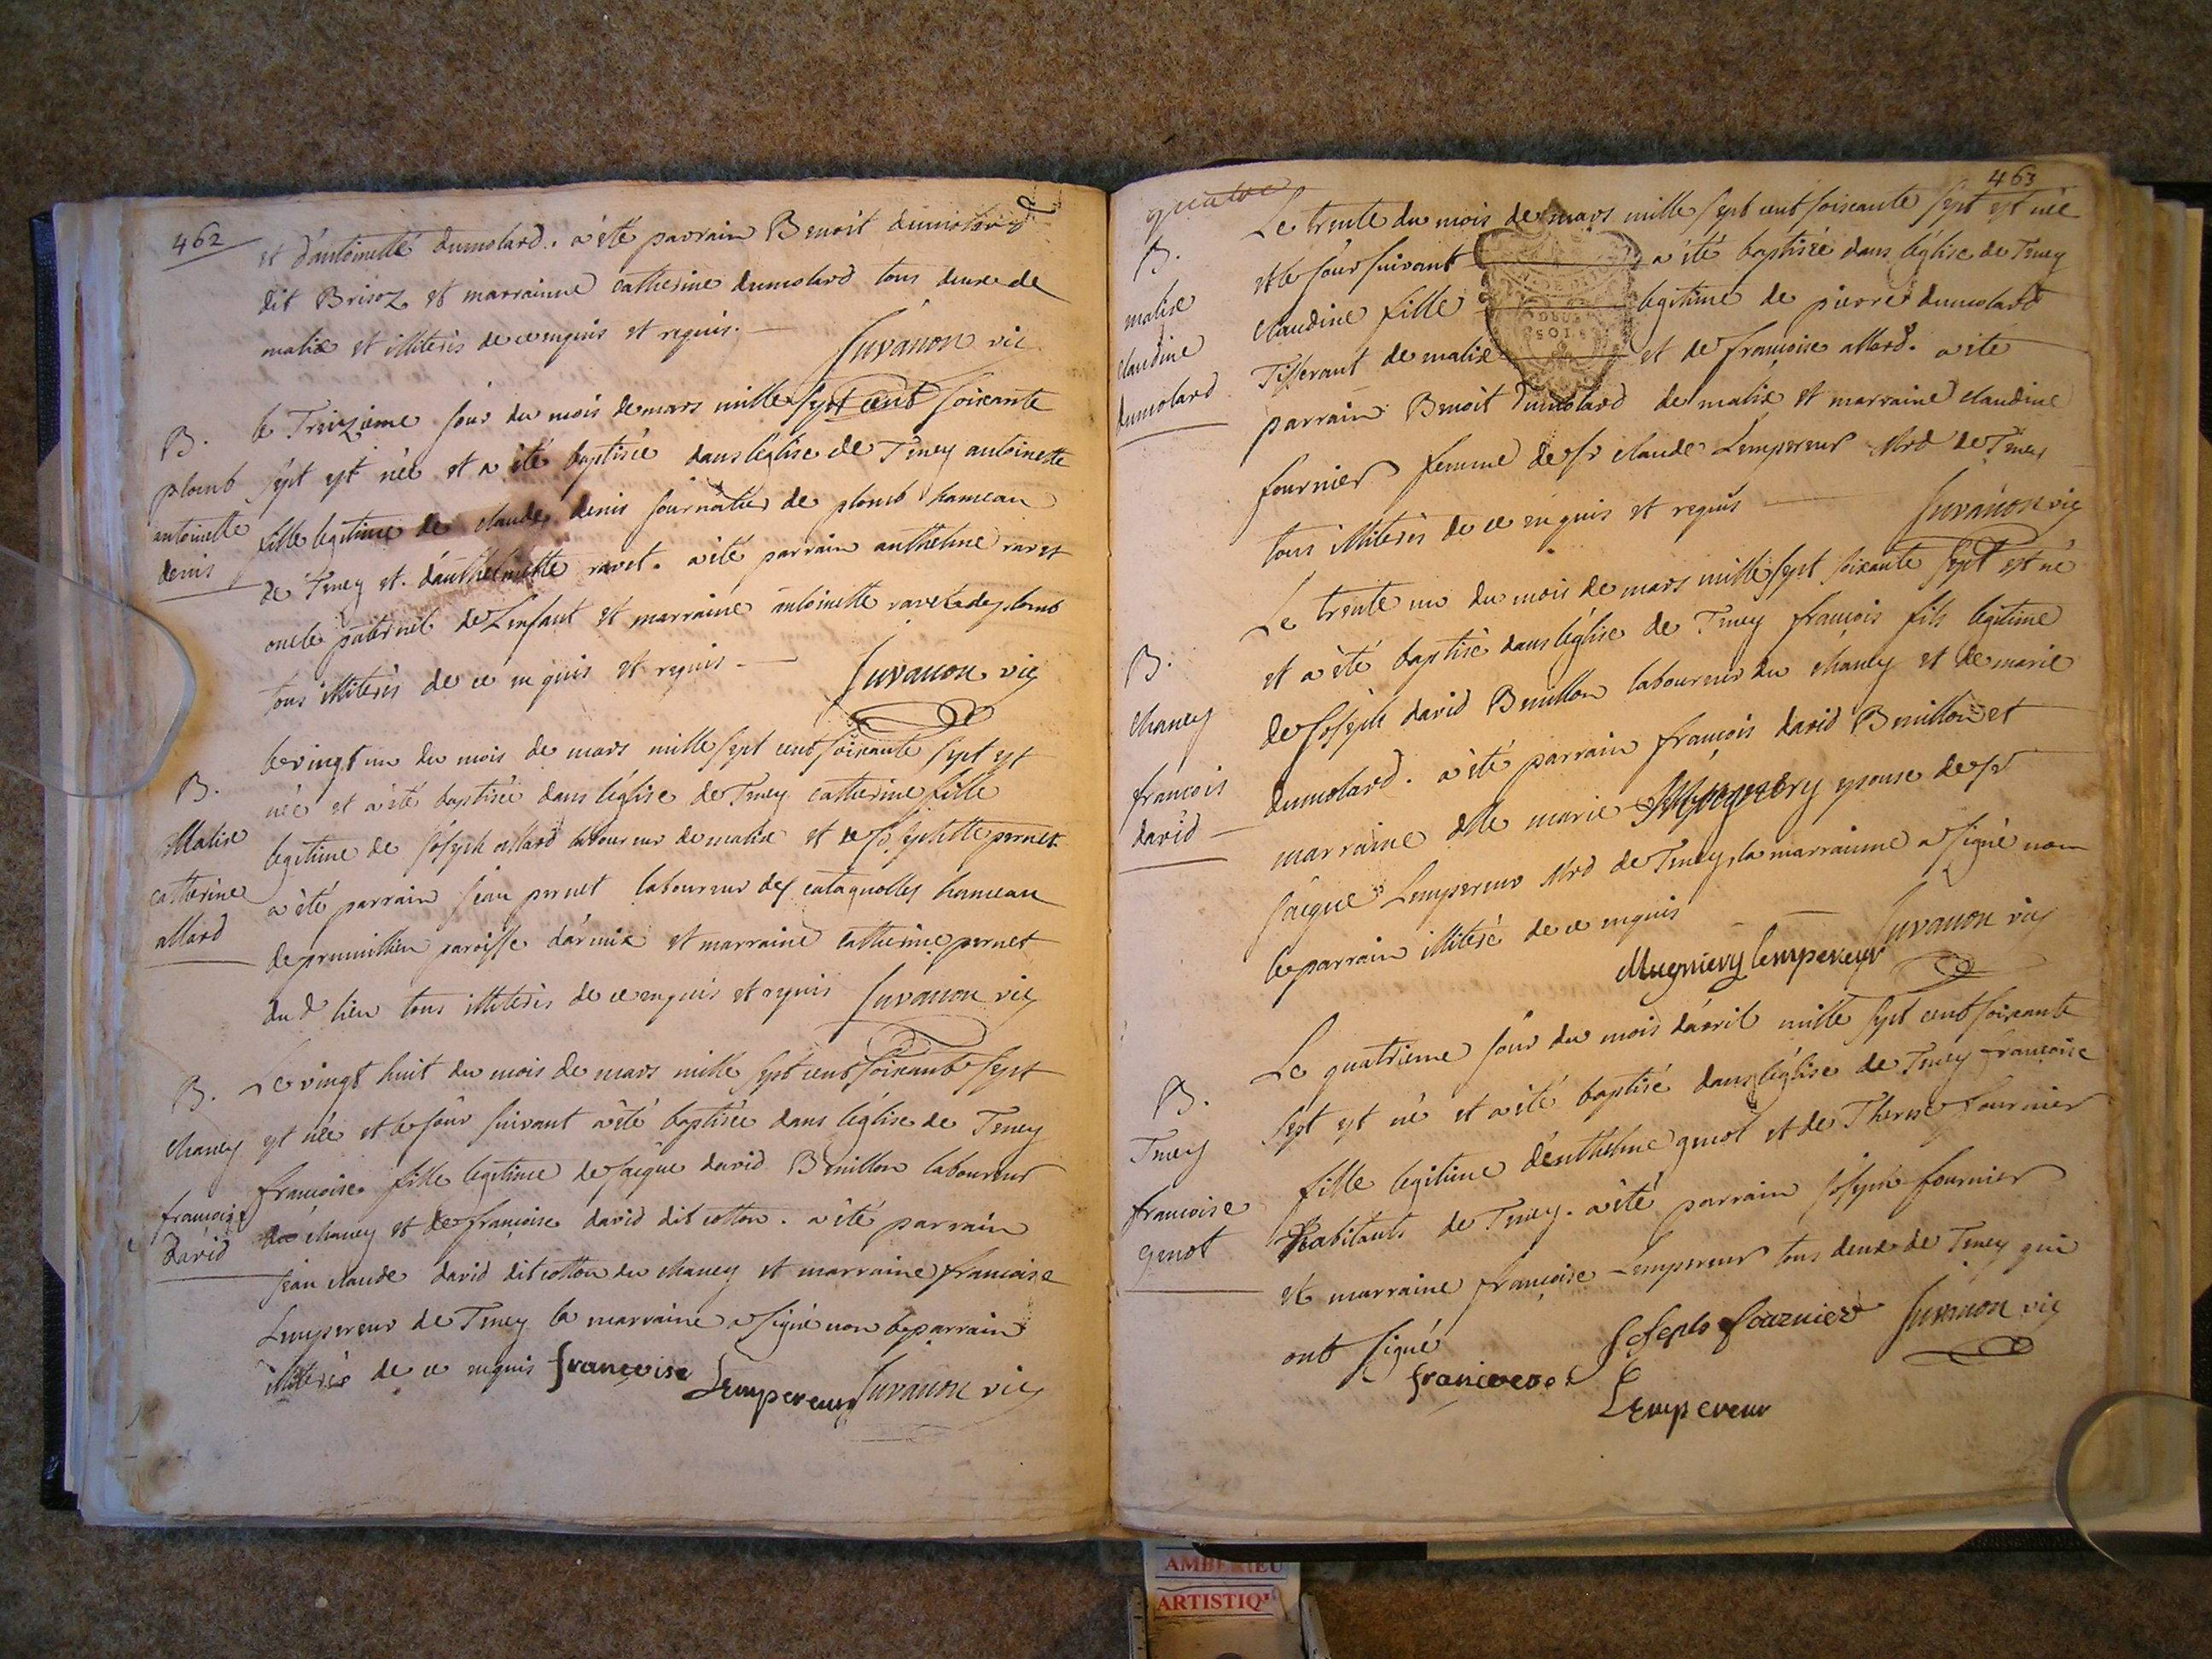 462
et d'antoinette dumolard. a été parrain Benoit dumolard
dit Brisoz et marrainne catherine dumolard tous deux de
malix et illiterés de ce enquis et requis. Juvanon vic
B.
plomb
antoinette
denis
le Treizieme jour du mois de mars mille sept cent soixante
sept est née et a été baptisée dans léglise de Teney antoinette
fille legitime de claude denis journalier de plomb hameau
de Teney et d'anthelmette ravet. a été parrain anthelme ravet
oncle paternel de Lenfant et marraine antoinette ravet de plomb
tous illiterés de ce enquis et requis - Juvanon vic
B.
Malix
catherine
allard
le vingt un du mois de mars mille sept cent soixante sept est
née et a été baptisée dans léglise de Teney catherine fille
legitime de joseph allard laboureur de malix et de josephette pernet
a été parrain jean pernet laboureur des catagnolles hameau
de premillieu paroisse d'armix et marraine catherine pernet
du d lieu tous illiterés de ce enquis et requis Juvanon vic
B.
chaney
francoise
david
Le vingt huit du mois de mars mille sept cent soixante sept
est née et le jour suivant a été baptisée dans léglise de Teney
francoise fille legitime de jaque david Bouillon laboureur
du chaney et de francoise david dit cotton. a été parrain
jean claude david dit cotton du chaney et marraine francoise
Lempereur de Teney la marraine a signé non le parrain
illiteré de ce enquis francoise Lempereur Juvanon vic
463
quatre
B.
malix
claudine
dumolard
Le trente du mois de mars mille sept cent soixante sept est née
et le jour suivant a été baptisée dans léglise de Teney
claudine fille legitime de pierre dumolard
Tisserant de malix et de francoise allard. a été
parrain Benoit Dumolard de malix et marraine claudine
fournier femme de sr claude Lempereur Mrd de Teney
tous illiterés de ce enquis et requis Juvanon vic
B.
chaney
francois
david
Le trente un du mois de mars mille sept soixante sept est né
et a été baptisé dans léglise de Teney francois fils legitime
de joseph david Bouillon laboureur du chaney et de marie
dumolard. a été parrain francois david Bouillon et
marraine dlle marie Mugniery epouse de sr
jaque Lempereur Mrd de Teney, la marrainne a signé non
le parrain illiteré de ce enquis Juvanon vic
Mugniery lempereur
B.
Teney
francoise
genot
Le quatrieme jour du mois d'avril mille sept cent soixante
sept est né et a été baptisé dans léglise de Teney francoise
fille legitime d'enthelme genot et de Therese fournier
habitants de Teney. a été parrain joseph fournier
et marraine francoise Lempereur tous deux de Teney qui
ont signé Joseph fournier Juvanon vic
Lempereur
AMBERIEU
ARTISTIQ